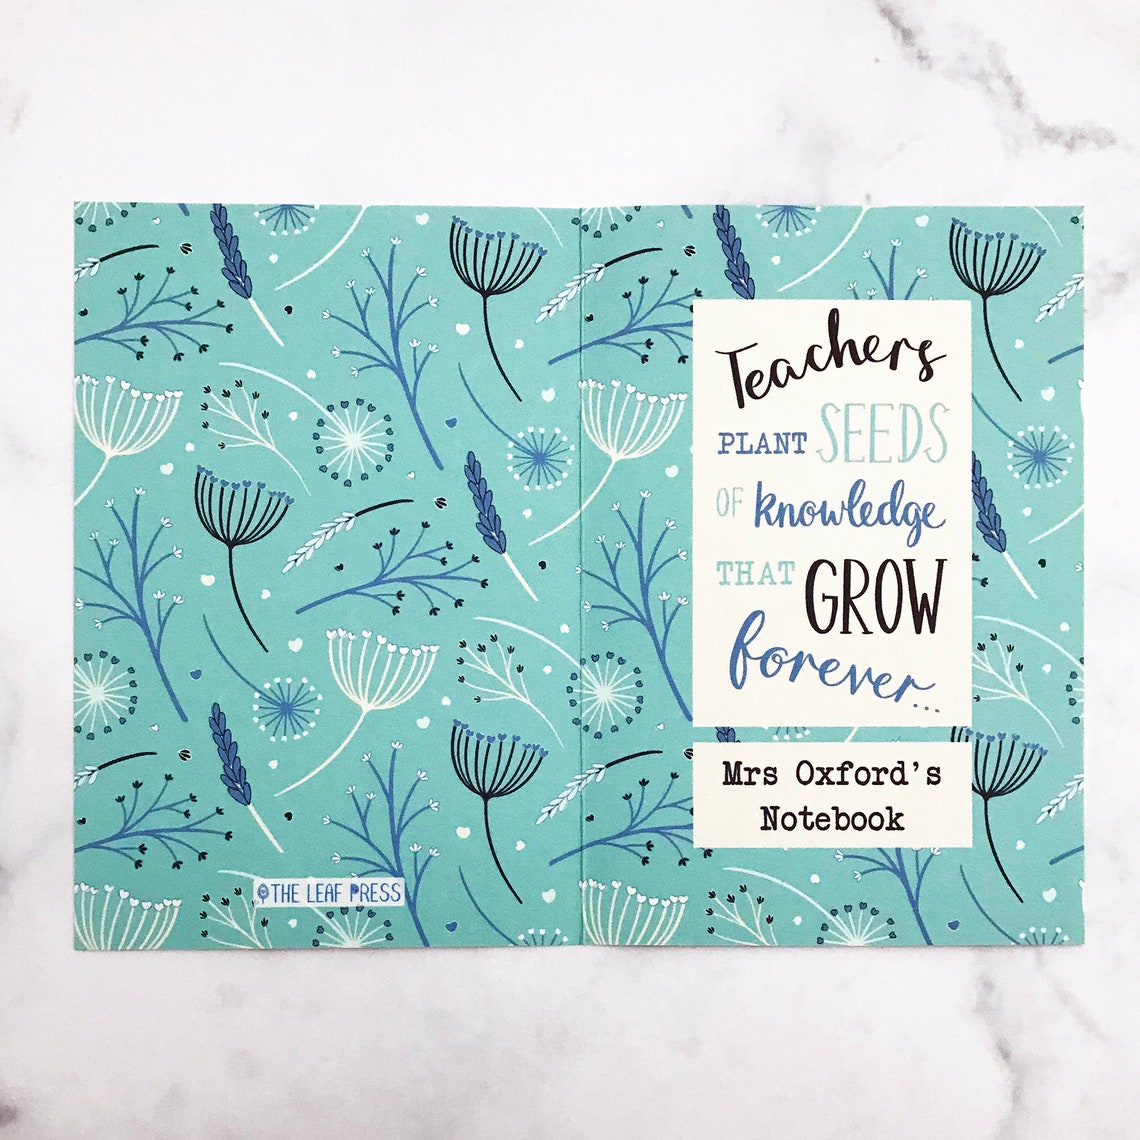 Teachers
PLANT SEEDS
OF knowledge
THAT GROW
forever...
Mrs Oxford's
Notebook
THE LEAF PRESS